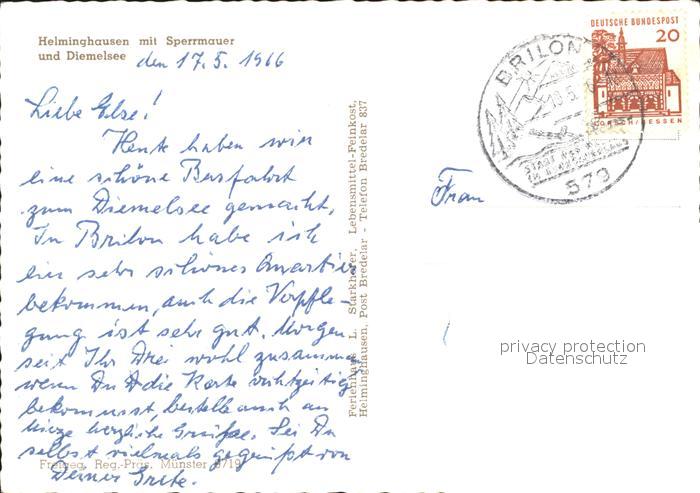 Helminghausen mit Sperrmauer
und Diemelsee
den 17.5.1966
Liebe Else!
Heute haben wir
eine schöne Busfahrt
zum Diemelsee gemacht,
In Brilon habe ich
ein sehr schönes Quartier
bekommen, auch die Verpfle-
gung ist sehr gut. Morgen
seit Ihr Drei wohl zusammen
wenn Du die Karte rechtzeitig
bekommst, bestelle auch an
herzliche Grüße. Sei Du
selbst vielmals gegrüßt von
Deiner Grete.
Freigeg. Reg.-Präs. Münster 8719
Ferienhaus L. Starkhofer, Lebensmittel-Feinkost,
Helminghausen, Post Bredelar - Telefon Bredelar 837
BRILON
573
DEUTSCHE BUNDESPOST
20
LORSCH/HESSEN
Frau
privacy protection
Datenschutz